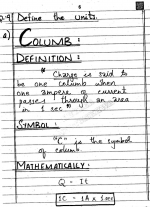 6
Q.9) Define the units.
a) COLUMB :
DEFINITION :
" Charge is said to
be one columb when
one ampere of current
passes through an area
in 1 sec "
SYMBOL :
"C" is the symbol
of columb
MATHEMATICALLY :
Q = It
1C = 1A x 1sec